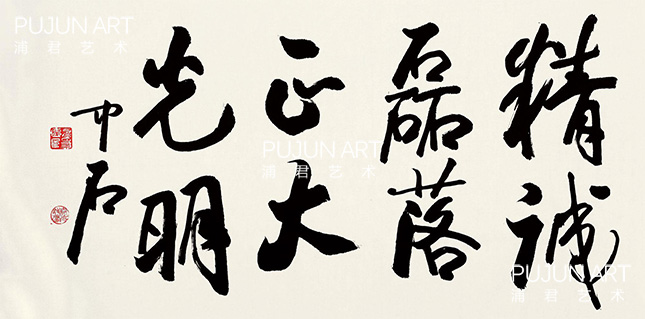 精诚
磊落
正大
光明
中石
PUJUN ART
浦君艺术
PUJUN ART
浦君艺术
PUJUN ART
浦君艺术